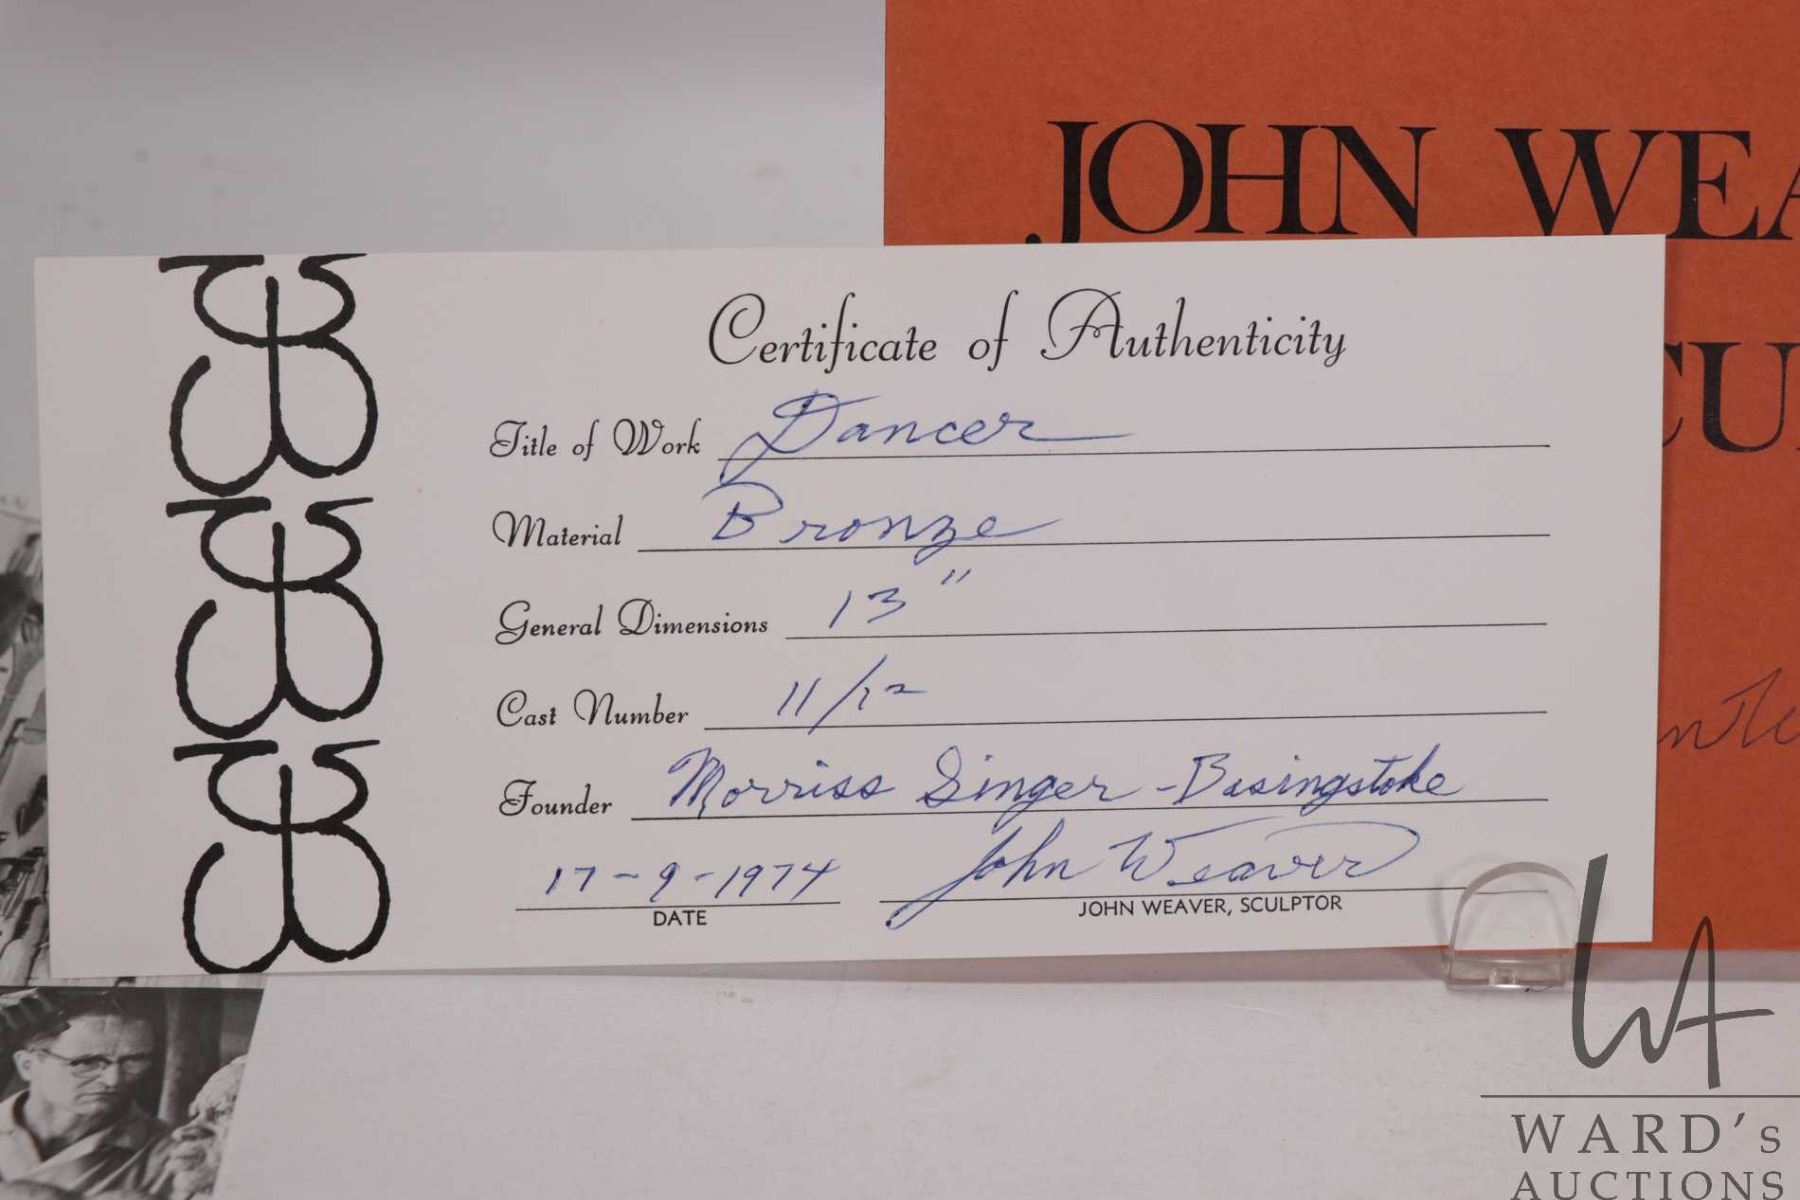 JOHN WEA
CU
Certificate of Authenticity
Title of Work Dancer
Material Bronze
General Dimensions 13"
Cast Number 11/12
Founder Morriss Singer - Basingstoke
17-9-1974 John Weaver
DATE JOHN WEAVER, SCULPTOR
WA
WARD's
AUCTIONS